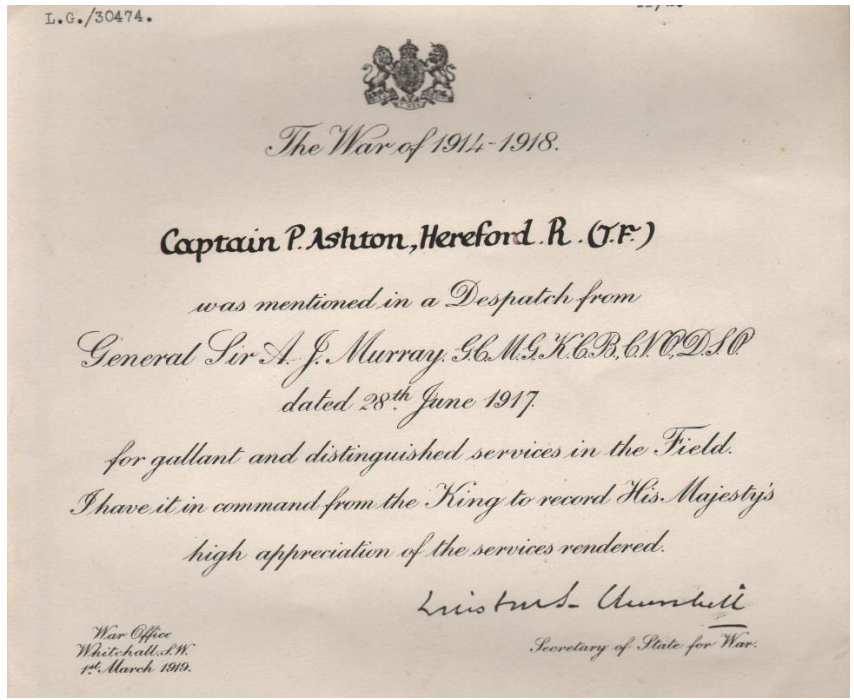 L.G./30474.
The War of 1914-1918.
Captain P. Ashton, Hereford. R. (T.F.)
was mentioned in a Despatch from
General Sir A. J. Murray, G.C.M.G. K.C.B., C.V.O., D.S.O.
dated 28th. June 1917.
for gallant and distinguished services in the Field.
I have it in command from the King to record His Majesty's
high appreciation of the services rendered.
Winston S. Churchill
Secretary of State for War.
War Office
Whitehall. S.W.
1st. March 1919.